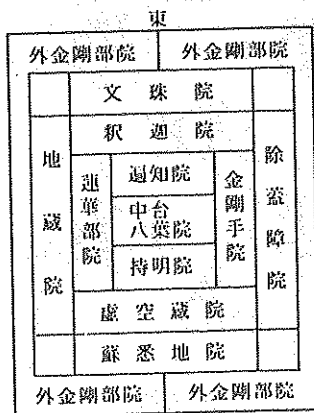 東
外金剛部院 外金剛部院
文殊院
釈迦院
地蔵院
蓮華部院
遍知院
中台八葉院
持明院
金剛手院
除蓋障院
虚空蔵院
蘇悉地院
外金剛部院 外金剛部院